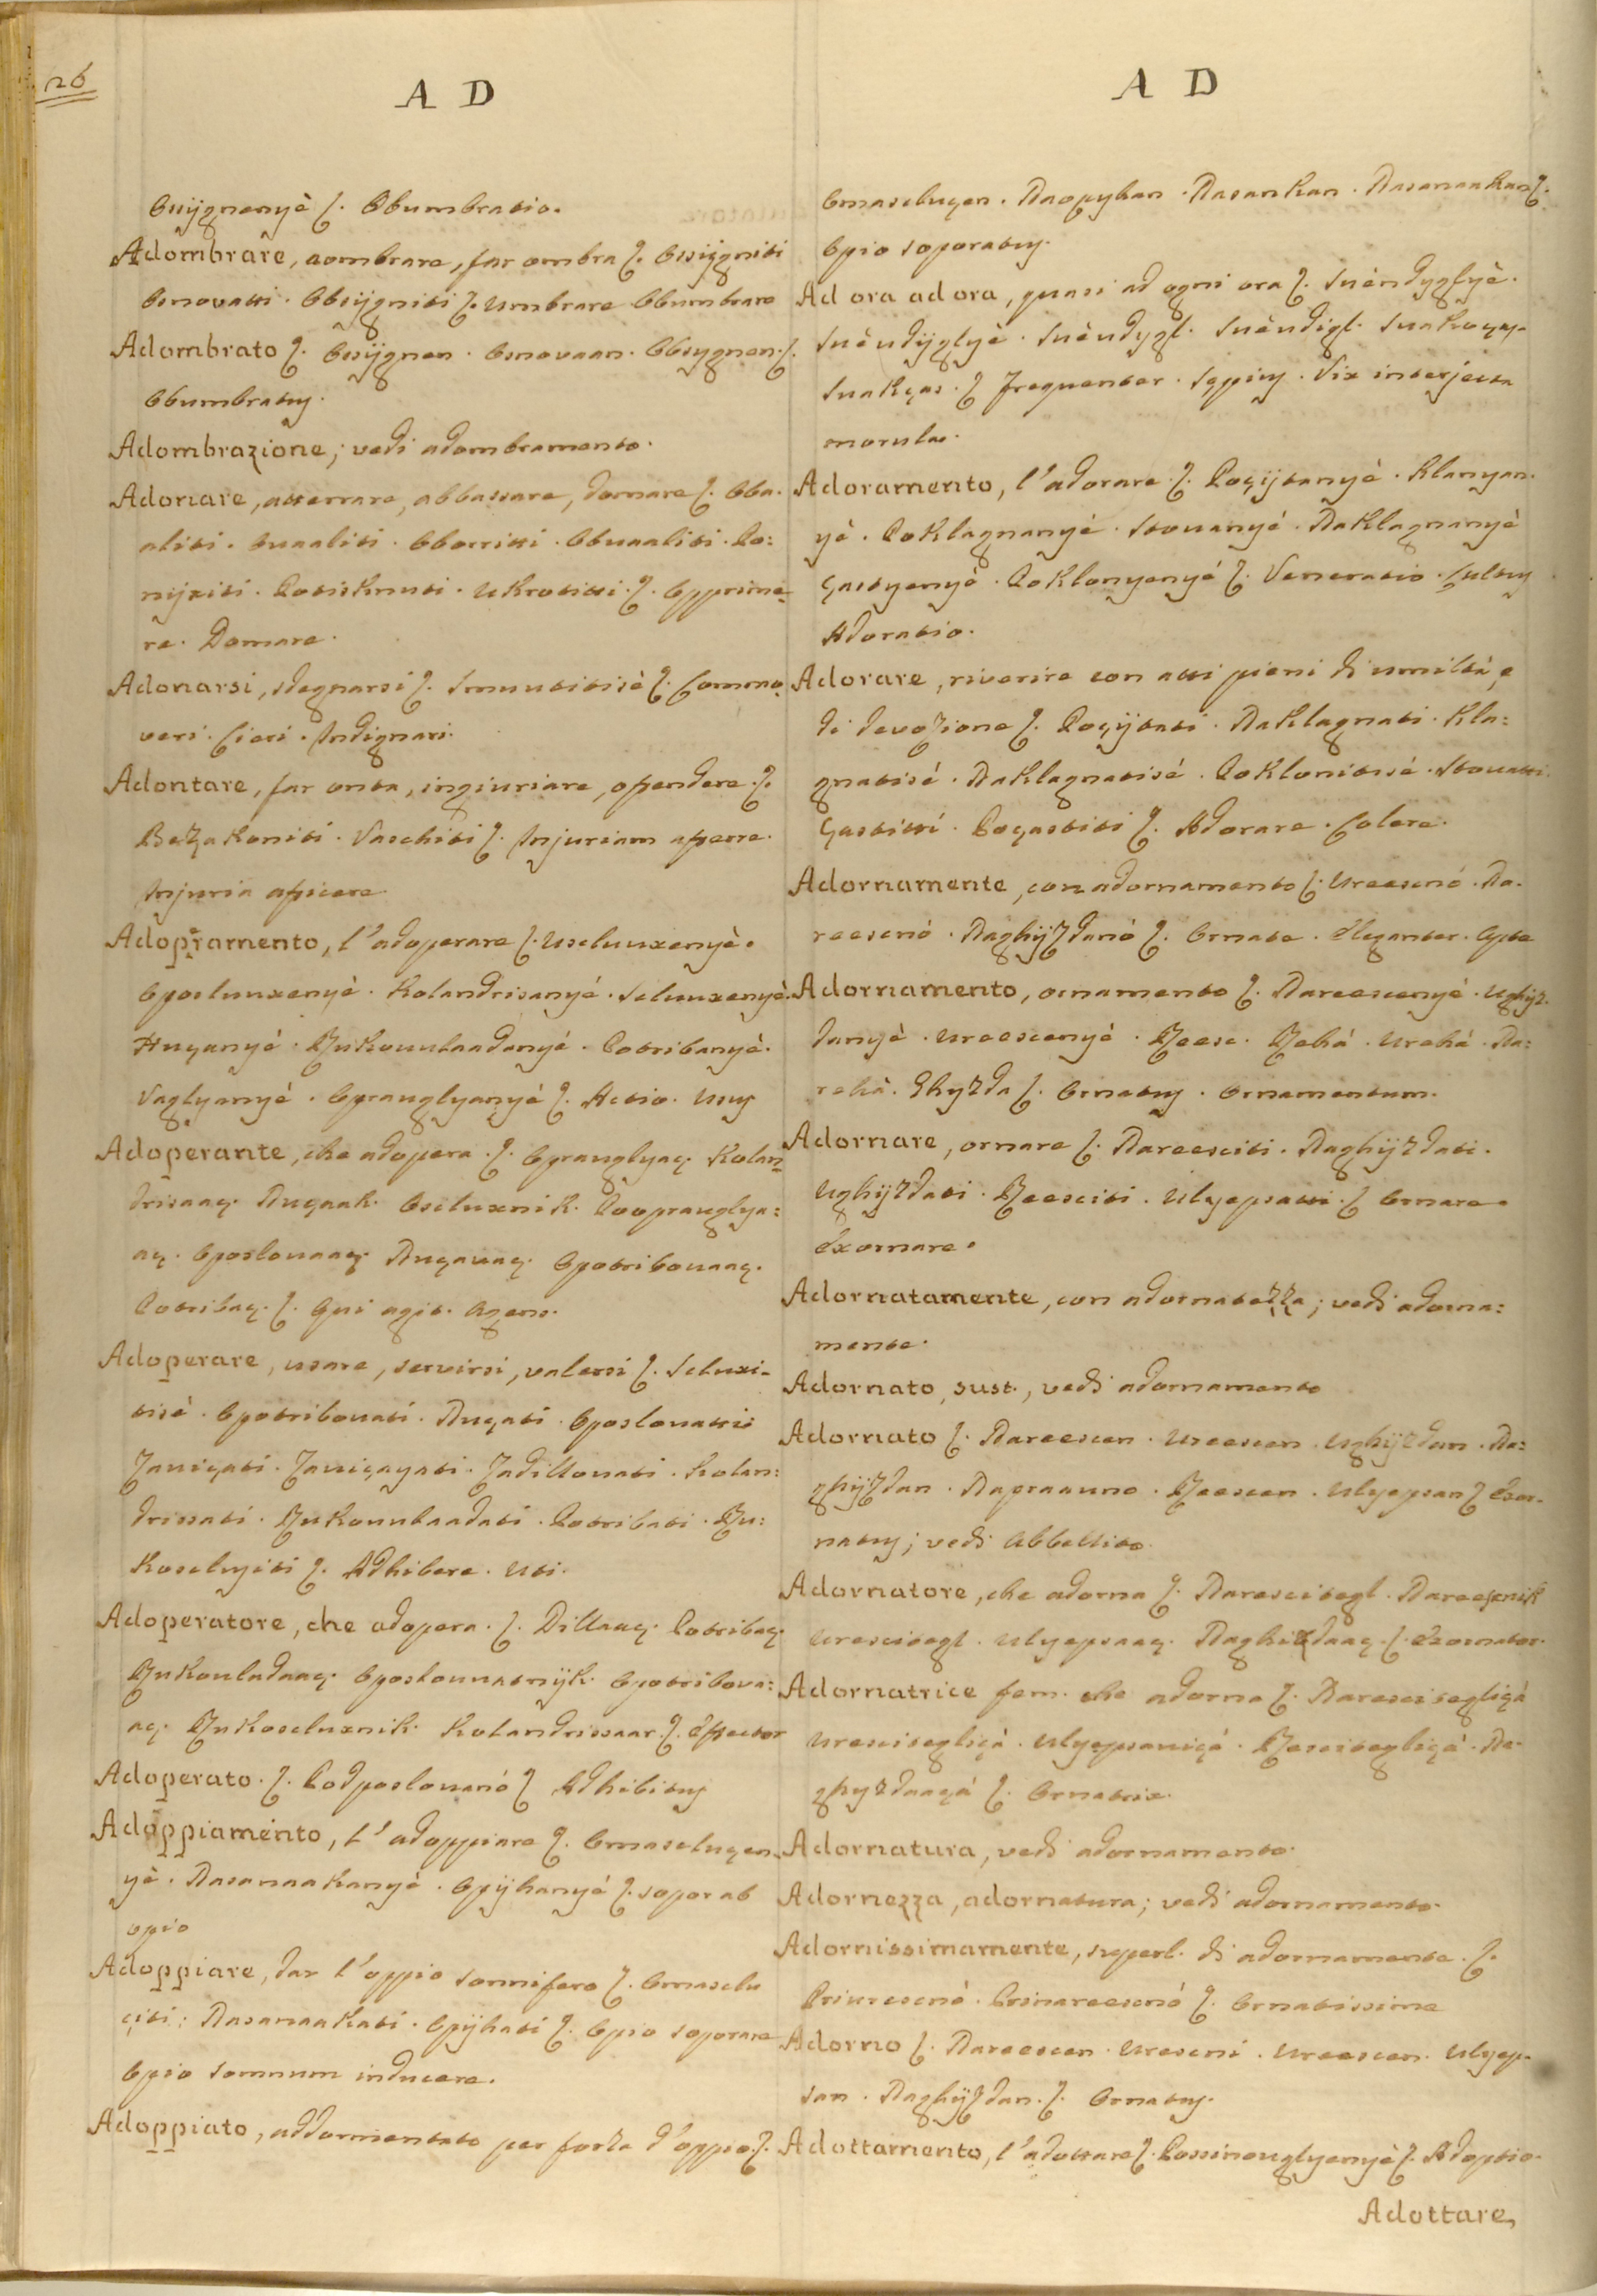 26
A D
Ossijgnenyè ſ. Obumbratio.
Adombrare, aombrare, far ombra ſ. Ossijgniti
Osnovatti. Obsijgniti ſ. Umbrare Obumbrare
Adombrato ſ. Ossijgnen. Osnovaan. Obsygnen. ſ.
Obumbratus.
Adombrazione, vedi adombramento.
Adonare, atterrare, abbassare, domare ſ. Oba-
aliti. Svaaliti. Oborritti. Obvaaliti. Po:
nijziti. Potisknuti. Ukrotitti. ſ. Opprime-
re. Domare.
Adonarsi, sdegnarsi ſ. Smuutitisè ſ. Commo-
veri. Cieri. Indignari.
Adontare, far onta, ingiuriare, offendere. ſ.
Bezakoniti. Vaschiti ſ. Injuriam afferre.
Injuria afficere.
Adopramento, l'adoperare ſ. Uscluuxenyè.
Oposluuxenyè. Kolandrisanyé. Scluuxenyè.
Huçanyè. Rukouulaadanyé. Potribanyè.
Vaglyanyé. Oprauglyanyé ſ. Actio. Usus
Adoperante, che adopera. ſ. Oprauglyaç. Kolan-
drisaaç. Nuçaak. Oscluxnik. Pooprauglya:
aç. Oposlouaaç. Nuçauaç. Opotribouaaç.
Potribaç. ſ. Qui agit. Agens.
Adoperare, usare, servirsi, valersi ſ. Scluxi-
tisè. Opotribouati. Nuçati. Oposlouatti
Zauiçati. Zauiçayati. Zadillouati. Kolan:
drissati. Rukouulaadati. Potribati. Ru:
Kosclugiti ſ. Adhibere. Uti.
Adoperatore, che adopera. ſ. Dillaaç. Potribaç.
Rukouladaaç. Oposlouuatnijk. Opotribova:
aç. Rukoscluxnik. Kolandrissaar. ſ. Effector
Adoperato. ſ. Podposlouanó ſ Adhibitus
Adoppiamento, l'adoppiare ſ. Omascluçen-
yè. Nasanaakanyè. Opijhanyé ſ. sopor ab
opio
Adoppiare, dar l'oppio sonnifero ſ. Omasclu
çiti: Nasanaakati. Opijhati ſ. Opio soporare
Opio somnum inducere.
Adoppiato, addormentato per forza d'oppio. ſ.
A D
Omascluçen. Naopyhan. Nasankan. Nasanaakan ſ.
Opio soporatus.
Ad ora ad ora, quasi ad ogni ora ſ. Suèndyglyè.
Suèudijglyè. Suèudygl. Suèudigl. Suakoças
Suakças. ſ Frequenter. Sępius. Vix interjecta
morula.
Adoramento, l'adorare. ſ. Poçijtanyè. Klanyan-
yè. Poklagnanyé. Stouanyé. Naklagnanyè
Çastyenyè. Poklonyenyé ſ. Veneratio. Cultus
Adoratio.
Adorare, riverire con atti pieni di umiltà, e
di devozione ſ. Poçijtati. Naklagnati. Kla:
gnatisé. Naklagnatisé. Poklonitisé. Stouatti.
Çastitti. Poçastiti ſ. Adorare. Colere.
Adornamente, con adornamento ſ. Ureesenó. Na-
reesenó. Naghijzdanó ſ. Ornate. Eleganter. Apte
Adornamento, ornamento ſ. Nareescenyé. Ughijz-
danyè. Ureescenyè. Reese. Rehá. Urehá. Na:
rehà. Ghyzda ſ. Ornatus. Ornamentum.
Adornare, ornare ſ. Nareesciti. Naghijzdati.
Ughijzdati. Reesciti. Ulyepsatti. ſ Ornare.
Exornare.
Adornatamente, con adornatezza; vedi adorna:
mente.
Adornato, sust., vedi adornamento
Adornato ſ. Nareescen. Ureescen. Ughijzdan. Na:
ghijzdan. Napraauno. Reescen. Ulyepsan ſ Exor-
natus; vedi Abbellito.
Adornatore, che adorna ſ. Narescitegl. Nareesenik
Urescitegl. Ulyepsaaç. Naghizdaaç. ſ. Exornator.
Adornatrice fem. che adorna ſ. Narescitegliçá
Urescitegliçà. Ulyepsauiçá. Rescitegliçá. Na-
ghyzdaaçá ſ. Ornatrix.
Adornatura, vedi adornamento.
Adornezza, adornatura; vedi adornamento.
Adornissimamente, superl. di adornamente. ſ.
Priuresenó. Prinareesenó ſ. Ornatissime
Adorno ſ. Nareescen. Uresení. Ureescen. Ulyep-
san. Naghijzdan. ſ. Ornatus.
Adottamento, l'adottare ſ. Possinouglyenyé ſ. Adoptio.
Adottare,